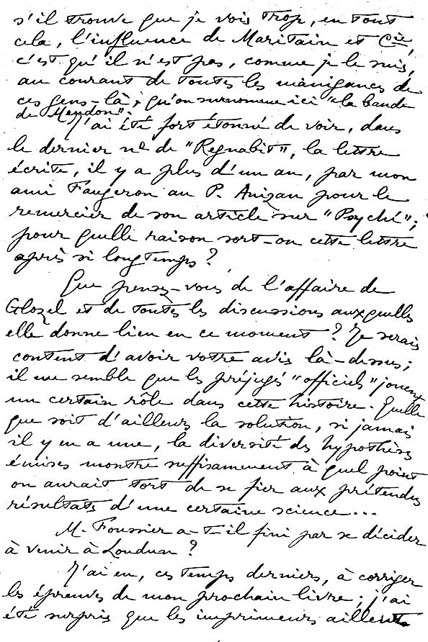 s'il trouve que je vois trop, en tout
cela, l'influence de Maritain et Cie,
c'est qu'il n'est pas, comme je le suis,
au courant de toutes les manigances de
ces gens-là, qu'on surnomme ici "la bande
de Meudon".
J'ai été fort étonné de voir, dans
le dernier no de "Regnabit", la lettre
écrite, il y a plus d'un an, par mon
ami Faugeron au P. Anizan pour le
remercier de son article sur "Psyché";
pour quelle raison sort-on cette lettre
après si longtemps ?
Que pensez-vous de l'affaire de
Glozel et de toutes les discussions auxquelles
elle donne lieu en ce moment ? Je serais
content d'avoir votre avis là-dessus;
il me semble que les préjugés "officiels" jouent
un certain rôle dans cette histoire. Quelle
que soit d'ailleurs la solution, si jamais
il y en a une, la diversité des hypothèses
émises montre suffisamment à quel point
on aurait tort de se fier aux prétendus
résultats d'une certaine science...
M. Foussier a-t-il fini par se décider
à venir à Loudun ?
J'ai eu, ces temps derniers, à corriger
les épreuves de mon prochain livre; j'ai
été surpris que les imprimeurs aillent